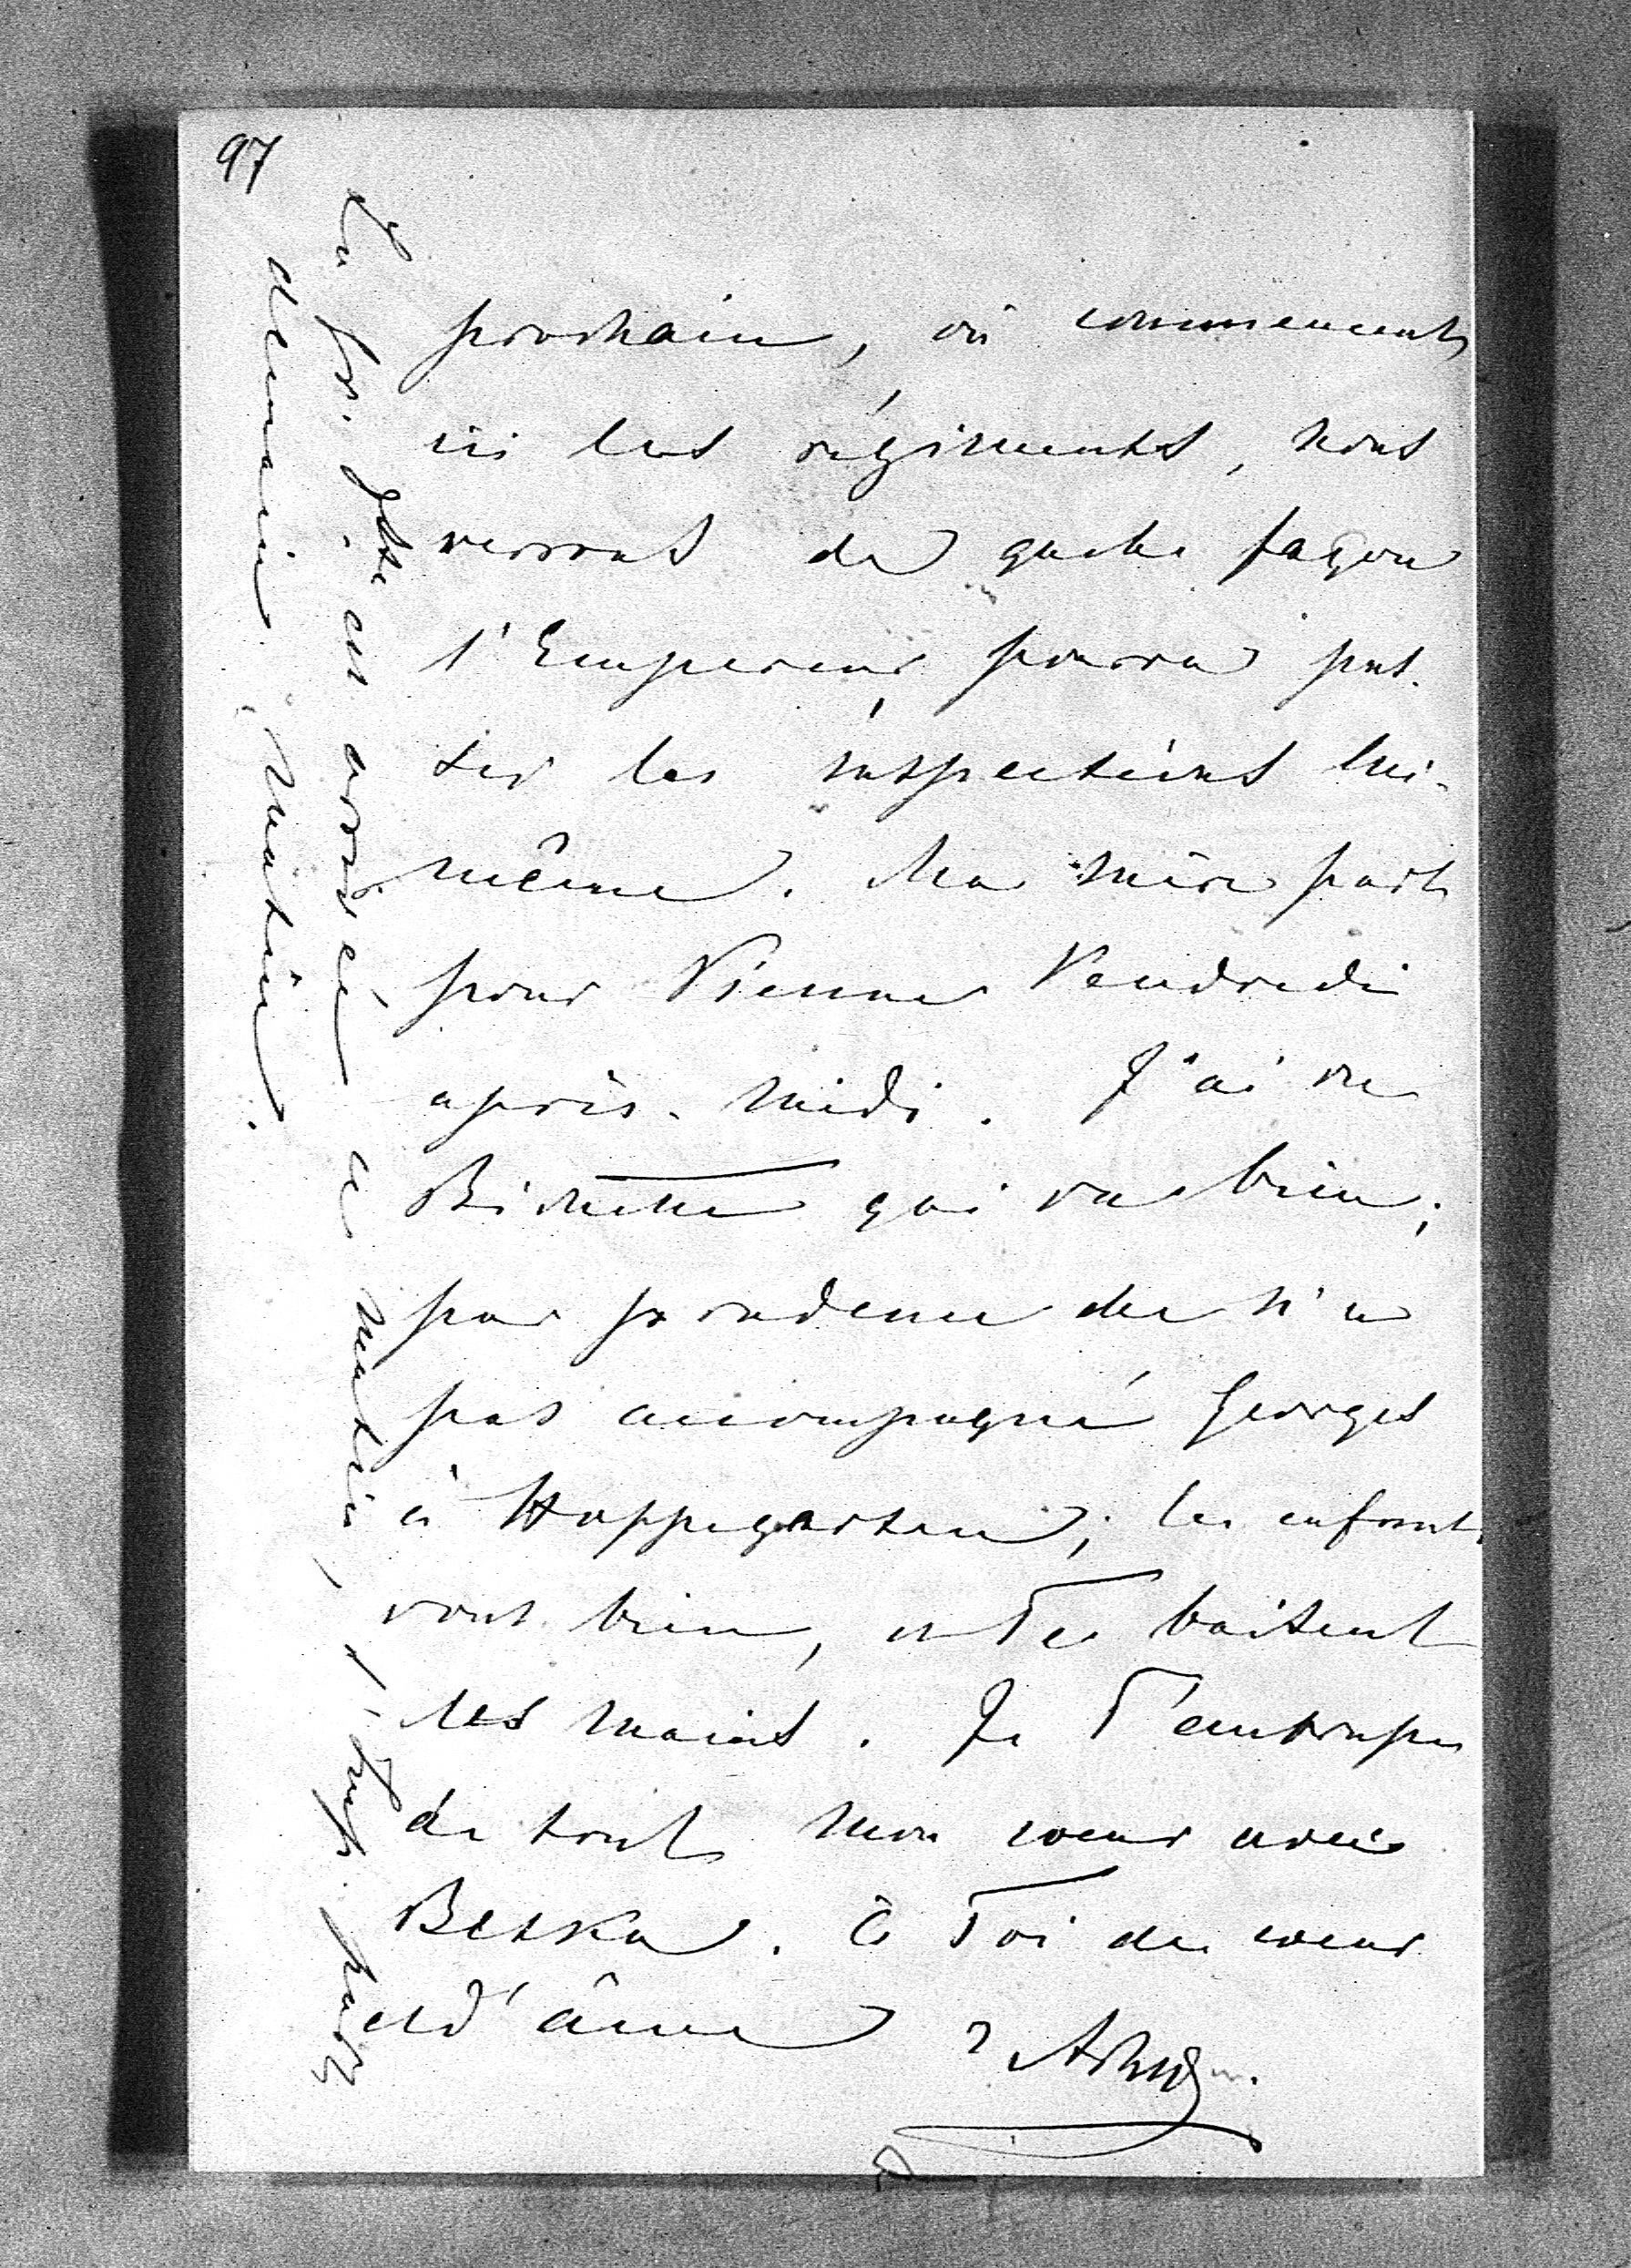 97
prochain, où commencent
ici les régiments, nous
verrons de quelle façon
l'Empereur pourra pas-
ser les inspections lui-
même. Ma mère part
pour Vienne Vendredi
après-midi. J'ai vu
Bichette qui va bien;
par prudence elle n'a
pas accompagné Georges
à Hoppegarten; les enfants
vont bien, et Te baisent
les mains. Je T'embrasse
de tout mon coeur avec
Betka. à Toi de coeur
et d'âme
La est arrivée ce matin, part
demain matin.